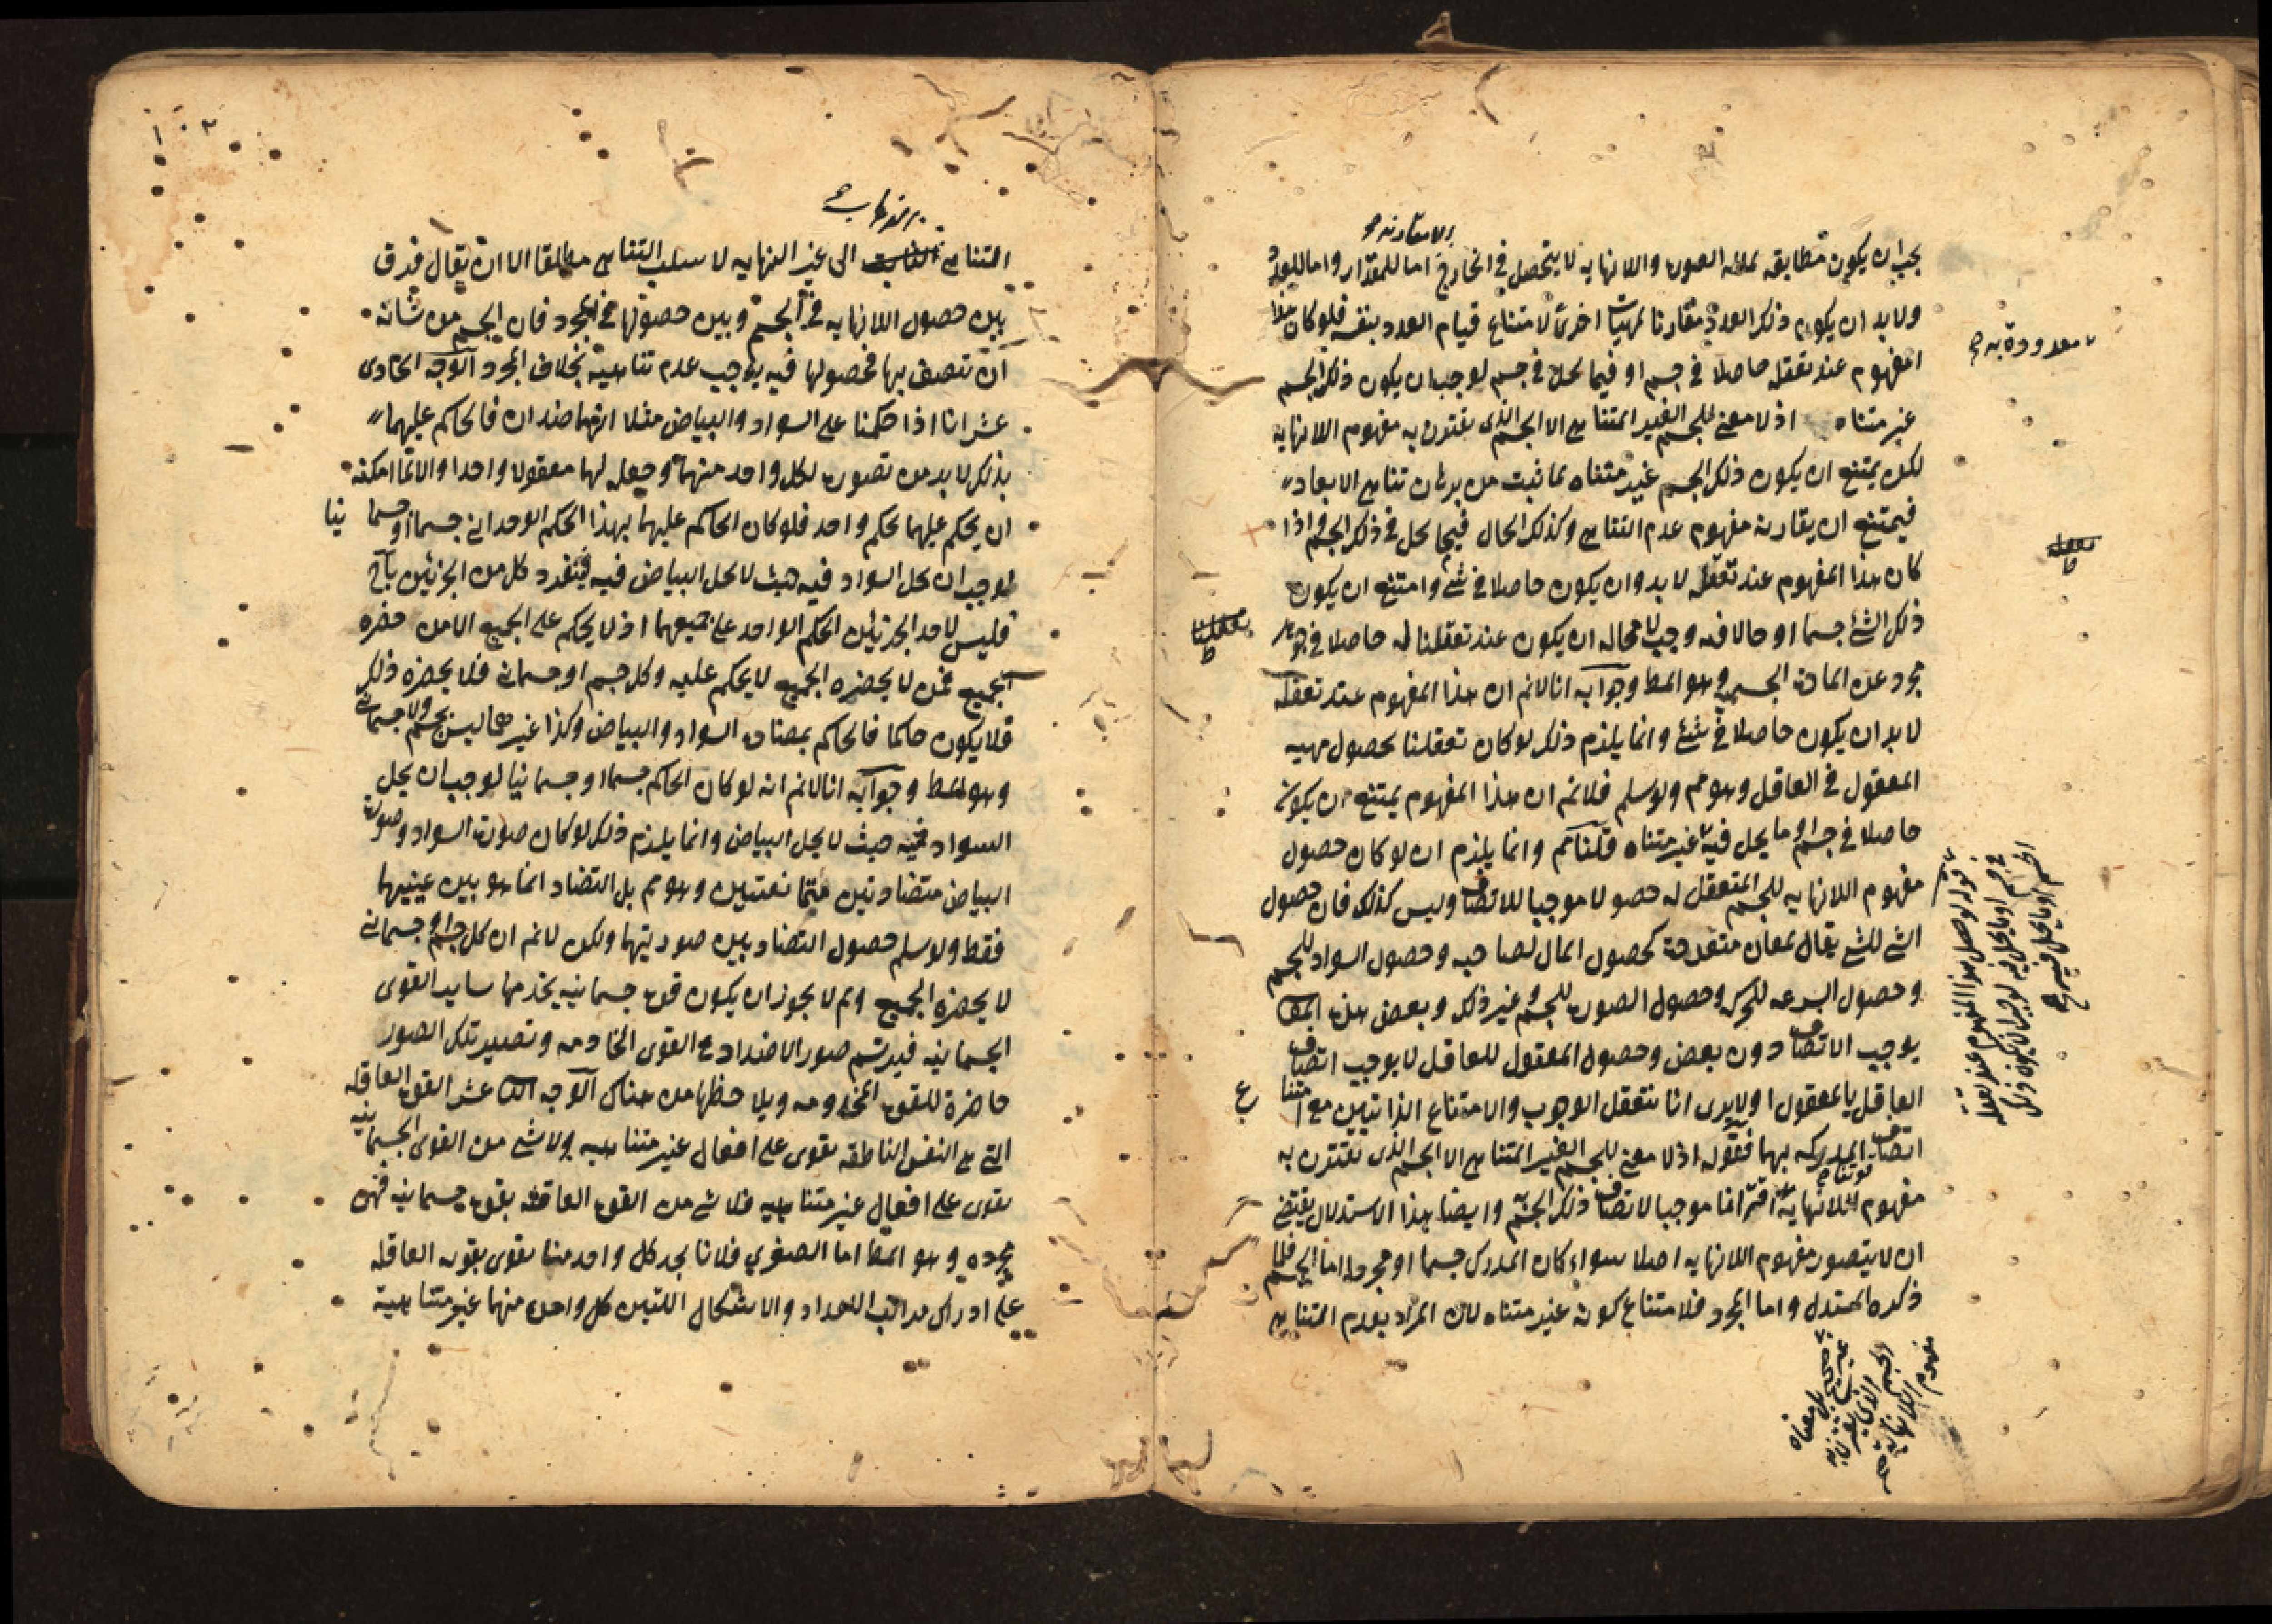 يجب ان يكون مطابقه لهذه الصورة واللانهايه لا يتحصل في الخارج اما للمقدار واما للعدد
ولابد ان يكون ذلك العدد مقارنا لمهيات اخرى لامتناع قيام العدد بنفسه فلو كان هذا
معدودة به صح
المفهوم عند تعقله حاصلا في جسم او فيما يحل في جسم لوجب ان يكون ذلك الجسم
غير متناه اذ لا معنى للجسم الغير المتناهى الا الجسم الذى يقترن به مفهوم اللانهايه
لكن يمتنع ان يكون ذلك الجسم غير متناه لما ثبت من برهان تناهى الابعاد
فيمتنع ان يقارنه مفهوم عدم التناهى وكذلك الحال فيما يحل في ذلك الجسم واذا
كان هذا المفهوم عند تعقله لابد وان يكون حاصلا في شئ وامتنع ان يكون
ذلك الشئ جسما او حالا فيه وجب لا محاله ان يكون عند تعقلنا له حاصلا في جوهر
مجرد عن المادة الجسمية وهو المط وجوابه انا لانم ان هذا المفهوم عند تعقله
لابد ان يكون حاصلا في شئ وانما يلزم ذلك لو كان تعقلنا بحصول مهيه
المعقول في العاقل وهو مم ولو سلم فلانم ان هذا المفهوم يمتنع ان يكون
حاصلا في جسم او ما يحل فيه غير متناه قلنا مم وانما يلزم ان لو كان حصول
قوله لو حصل هذا المفهوم عند تعقله
في جسم او ما يحل فيه لوجب ان يكون ذلك
الجسم او ما يحل فيه صح
مفهوم اللانهايه للجسم المتعقل له حصولا موجبا للاتصاف وليس كذلك فان حصول
الشئ للشئ يقال لمعان متعددة كحصول المال لصاحبه وحصول السواد للجسم
وحصول السرعه للحركه وحصول الصورة للجسم وغير ذلك وبعض هذه المعا
يوجب الاتصاف دون بعض وحصول المعقول للعاقل لا يوجب اتصاف
العاقل بالمعقول اولا يرى انا نتعقل الوجوب والامتناع الذاتيين مع امتناع
اتصاف المدركه بهما فقوله اذ لا معنى للجسم الغير المتناهى الا الجسم الذى يقترن به
مفهوم اللانهايه اقترانا موجبا لاتصاف ذلك الجسم به وايضا هذا الاستدلال يقتضى
ان لا يتصور مفهوم اللانهايه اصلا سواء كان المدرك جسما او مجردا اما الجسم فلما
ذكره المستدل واما المجرد فلامتناع كونه غير متناه لان المراد بعدم التناهى
المتناهى الى غير النهايه لا سلب التناهى مطلقا الا ان يقال فرق
بين حصول اللانهايه في الجسم وبين حصولها في المجرد فان الجسم من شانه
ان تتصف بها فحصولها فيه يوجب عدم تناهيه بخلاف المجرد الوجه الحادى
عشر انا اذا حكمنا على السواد والبياض مثلا انهما ضدان فالحاكم عليهما
بذلك لابد من تصوره لكل واحد منهما وجعله لهما معقولا واحدا والا لما امكنه
ان يحكم عليهما بحكم واحد فلو كان الحاكم عليهما بهذا الحكم الوحدانى جسما او جسمانيا
لوجب ان يحل السواد فيه حيث لا يحل البياض فيه فينفرد كل من الجزئين باثر
فليس لاحد الجزئين الحكم الواحد على جميعهما اذ لا يحكم على الجميع الا من حضره
الجميع فمن لا يحضره الجميع لا يحكم عليه وكل جسم او جسمانى فلا يحضره ذلك
فلا يكون حاكما فالحاكم بمضادة السواد والبياض وكذا غيرهما ليس بجسم ولا جسمانى
وهو المط وجوابه انا لانم انه لو كان الحاكم جسما او جسمانيا لوجب ان يحل
السواد فيه حيث لا يحل البياض وانما يلزم ذلك لو كان صورة السواد وصورة
البياض متضادتين متمانعتين وهو مم بل التضاد انما هو بين عينيهما
فقط ولو سلم حصول التضاد بين صورتيهما ولكن لانم ان كل جسم او جسمانى
لا يحضره الجميع ولم لا يجوز ان يكون قوة جسمانيه يخدمها ساير القوى
الجسمانيه فيرتسم صور الاضداد في القوى الخادمه وتصير تلك الصور
حاضرة للقوة المخدومه ويلاحظها من هناك الوجه الثانى عشر القوة العاقله
التى هى النفس الناطقه تقوى على افعال غير متناهيه ولا شئ من القوى الجسمانيه
تقوى على افعال غير متناهيه فلا شئ من القوة العاقله بقوة جسمانيه فهى
مجرده وهو المط اما الصغرى فلانا نجد كل واحد منا تقوى بقوته العاقله
على ادراك مراتب الاعداد والاشكال اللتين كل واحدة منهما غير متناهية